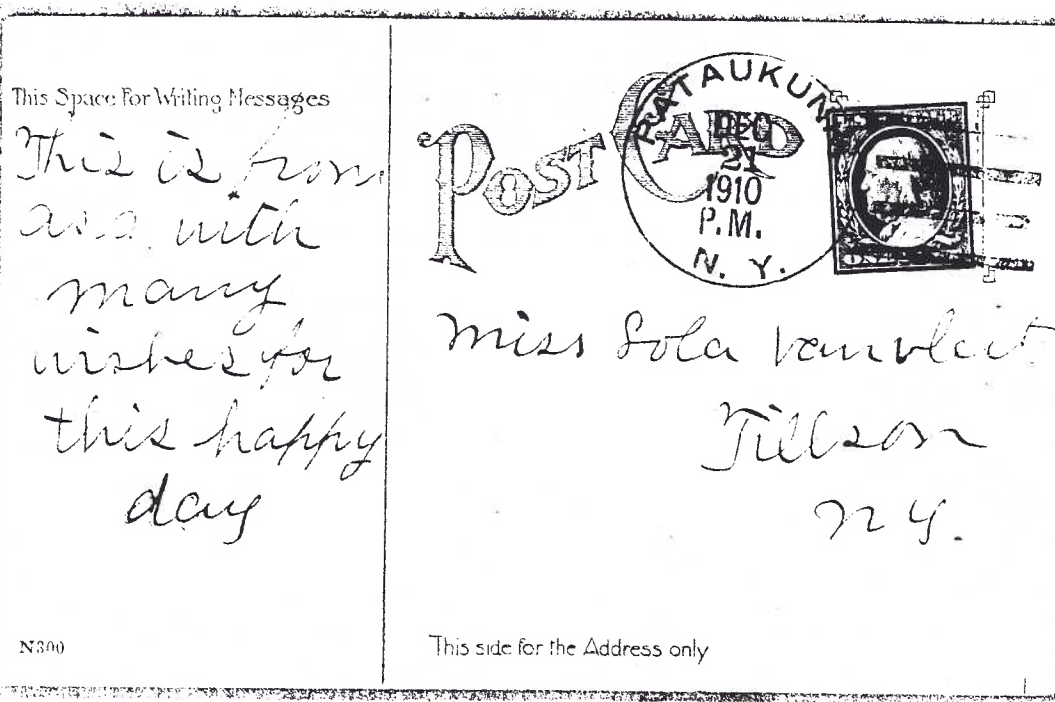 This Space For Writing Messages
This is from
asa with
many
wishes for
this happy
day
N300
POST CARD
RATAUKUN
DEC
21
1910
P.M.
N. Y.
Miss Lola Vanvleit
Tillson
N Y.
This side for the Address only